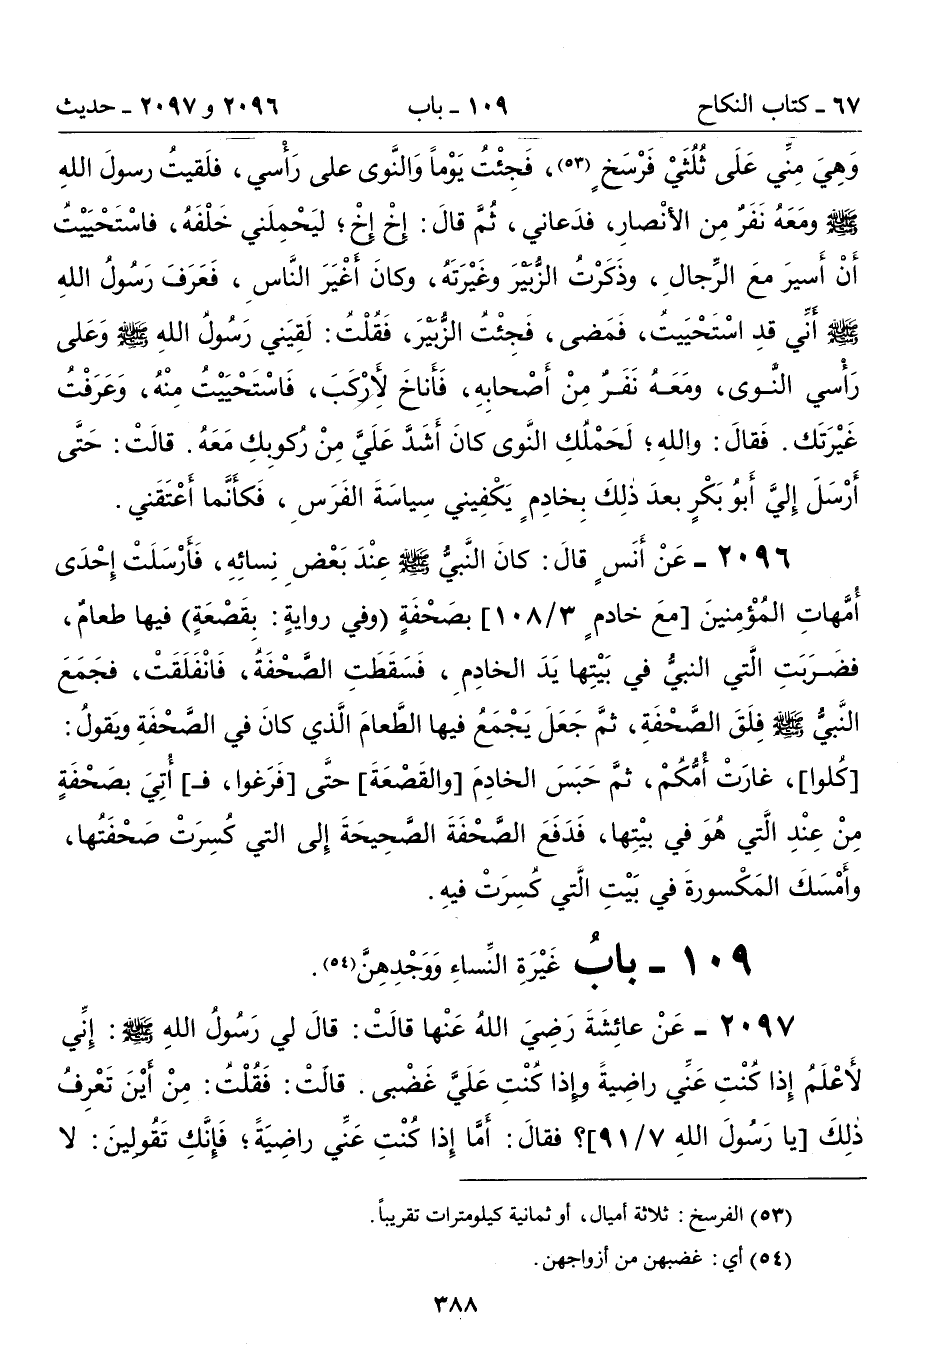 ٦٧ ـ كتاب النكاح ١٠٩ ـ باب ٢٠٩٦ و ٢٠٩٧ ـ حديث
وَهِيَ مِنِّي عَلَى ثُلُثَيْ فَرْسَخٍ (٥٣)، فَجِئْتُ يَوْماً وَالنَّوى على رَأْسي، فلَقيتُ رسولَ اللهِ
ﷺ ومَعَهُ نَفَرٌ مِن الأنْصارِ، فدَعاني، ثُمَّ قالَ: إخْ إخْ؛ ليَحْمِلَني خَلْفَهُ، فاسْتَحْيَيْتُ
أنْ أَسيرَ معَ الرِّجالِ، وذَكَرْتُ الزُّبَيْرَ وغَيْرَتَهُ، وكانَ أَغْيَرَ النَّاسِ، فَعَرَفَ رَسُولُ اللهِ
ﷺ أَنِّي قدِ اسْتَحْيَيتُ، فَمَضى، فَجِئْتُ الزُّبَيْرَ، فَقُلْتُ: لَقِيَني رَسُولُ اللهِ ﷺ وَعَلى
رَأْسي النَّوى، ومَعَهُ نَفَرٌ مِنْ أَصْحابِهِ، فَأَناخَ لِأَرْكَبَ، فَاسْتَحْيَيْتُ مِنْهُ، وَعَرَفْتُ
غَيْرَتَك. فَقالَ: واللهِ؛ لَحَمْلُكِ النَّوى كانَ أَشَدَّ عَلَيَّ مِنْ رُكوبِكِ مَعَهُ. قالَتْ: حَتَّى
أَرْسَلَ إِليَّ أَبو بَكْرٍ بعدَ ذٰلِكَ بِخادِمٍ يَكْفِيني سِياسَةَ الفَرَسِ، فَكأَنَّما أَعْتَقَني.
٢٠٩٦ ـ عَنْ أَنَسٍ قالَ: كانَ النَّبيُّ ﷺ عِنْدَ بَعْضِ نِسائِهِ، فَأَرْسَلَتْ إِحْدَى
أُمَّهاتِ المُؤْمِنينَ [معَ خادمٍ ٣/١٠٨] بصَحْفَةٍ (وفي روايةٍ: بِقَصْعَةٍ) فيها طعامٌ،
فضَرَبَتِ الَّتي النبيُّ في بَيْتِها يَدَ الخادِمِ، فَسَقَطَتِ الصَّحْفَةُ، فَانْفَلَقَتْ، فجَمَعَ
النَّبيُّ ﷺ فِلَقَ الصَّحْفَةِ، ثمَّ جَعَلَ يَجْمَعُ فيها الطَّعامَ الَّذي كانَ في الصَّحْفَةِ ويَقولُ:
[كُلوا]، غارَتْ أُمُّكُمْ، ثمَّ حَبَسَ الخادِمَ [والقَصْعَةَ] حتَّى [فَرَغوا، فـ] أُتِيَ بصَحْفَةٍ
مِنْ عِنْدِ الَّتي هُوَ في بيْتِها، فَدَفَعَ الصَّحْفَةَ الصَّحيحَةَ إِلى التي كُسِرَتْ صَحْفَتُها،
وأَمْسَكَ المَكْسورةَ في بَيْتِ الَّتي كُسِرَتْ فيهِ.
١٠٩ ـ بابُ غَيْرَةِ النِّساءِ وَوَجْدِهِنَّ(٥٤).
٢٠٩٧ ـ عَنْ عائِشَةَ رَضِيَ اللهُ عَنْها قالَتْ: قالَ لي رَسُولُ اللهِ ﷺ: إِنِّي
لَأَعْلَمُ إِذا كُنْتِ عَنِّي راضِيةً وإِذا كُنْتِ عَلَيَّ غَضْبى. قالَتْ: فَقُلْتُ: مِنْ أَيْنَ تَعْرِفُ
ذٰلِكَ [يا رَسُولَ اللهِ ٧/٩١]؟ فقالَ: أَمَّا إِذا كُنْتِ عَنِّي راضِيَةً؛ فَإِنَّكِ تَقُولِينَ: لا
(٥٣) الفرسخ: ثلاثة أميال، أو ثمانية كيلومترات تقريباً.
(٥٤) أي: غضبهن من أزواجهن.
٣٨٨